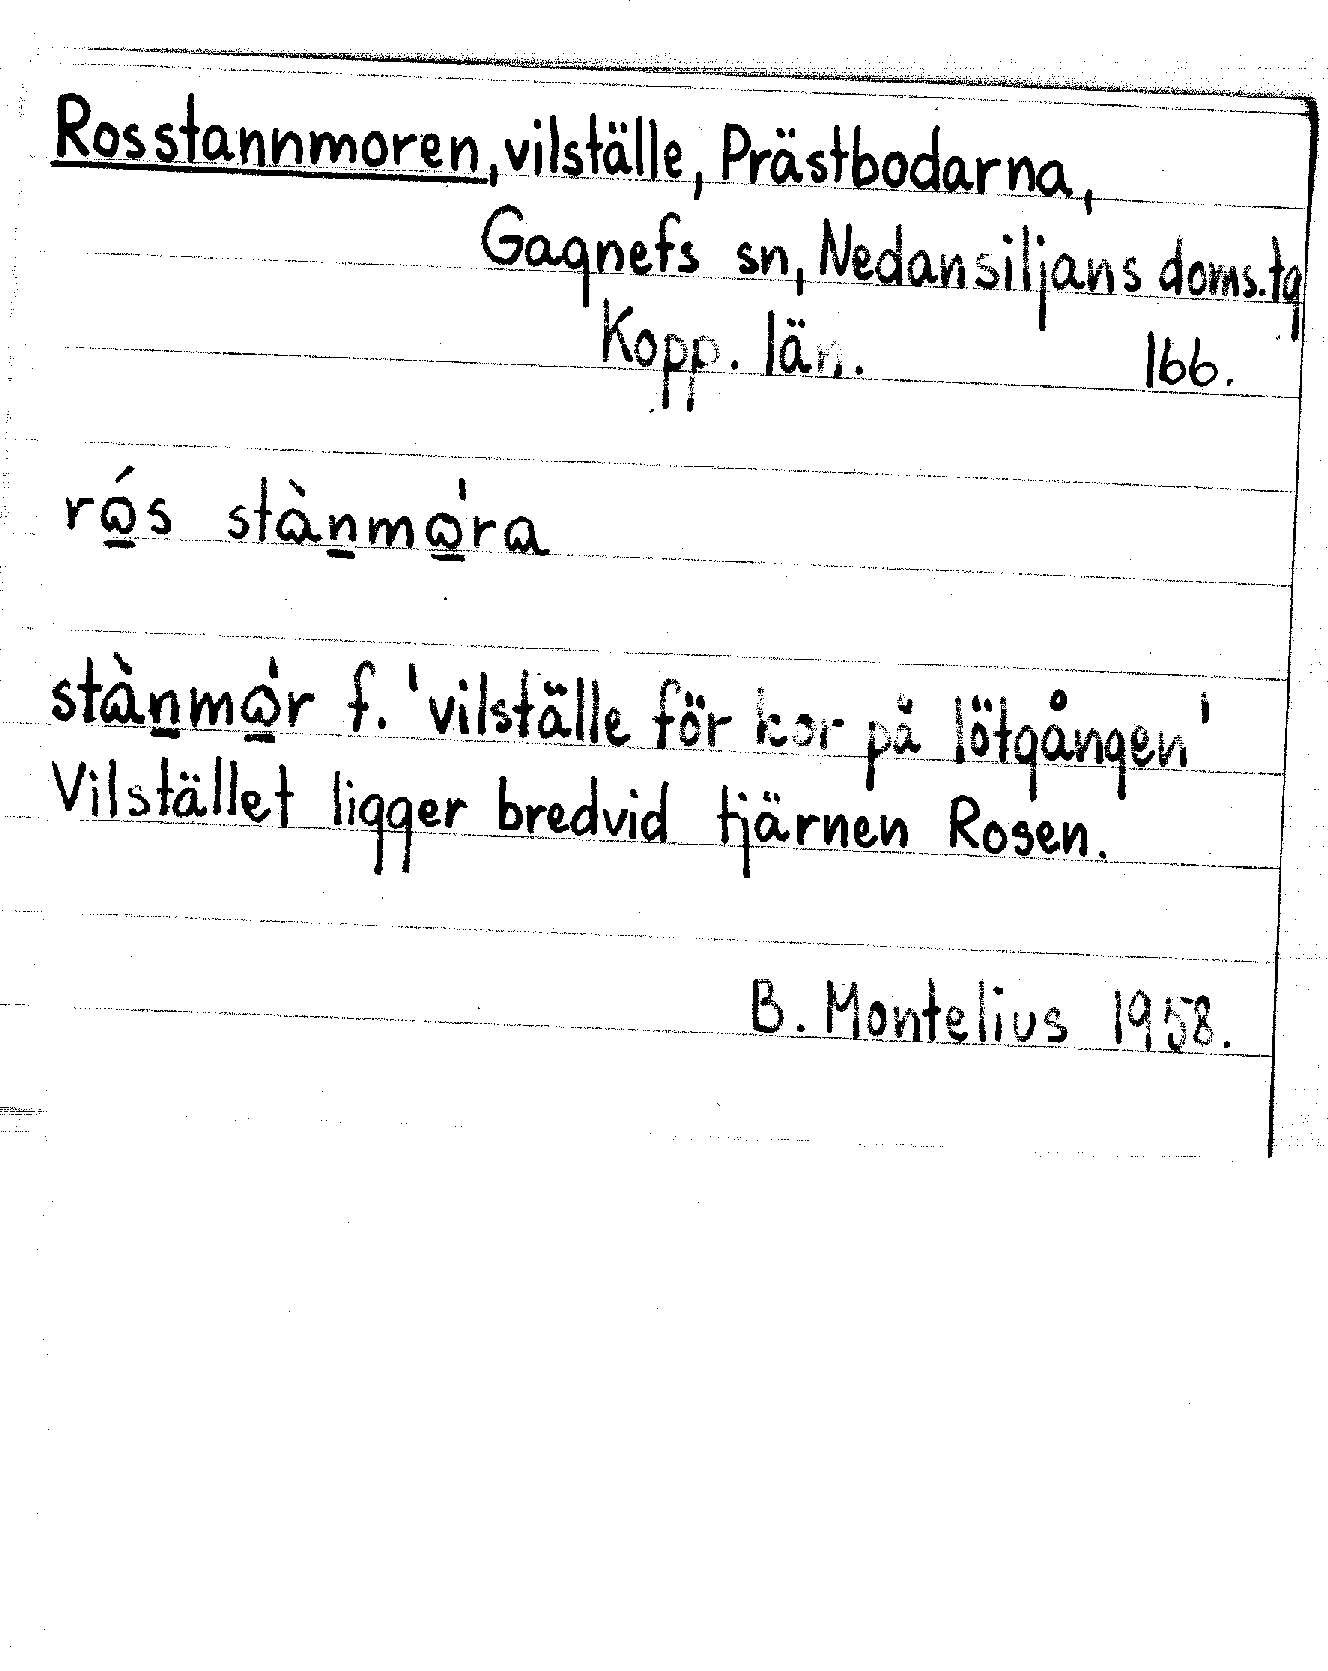 Rosstannmoren, vilställe, Prästbodarna,
Gagnefs sn, Nedansiljans doms.tg
Kopp. län. 166.
rώ̲s stὰn̲mω̲̍ra
stὰn̲mω̲̍r f. 'vilställe för kor på lötgången'
Vilstället ligger bredvid tjärnen Rosen.
B. Montelius 1958.